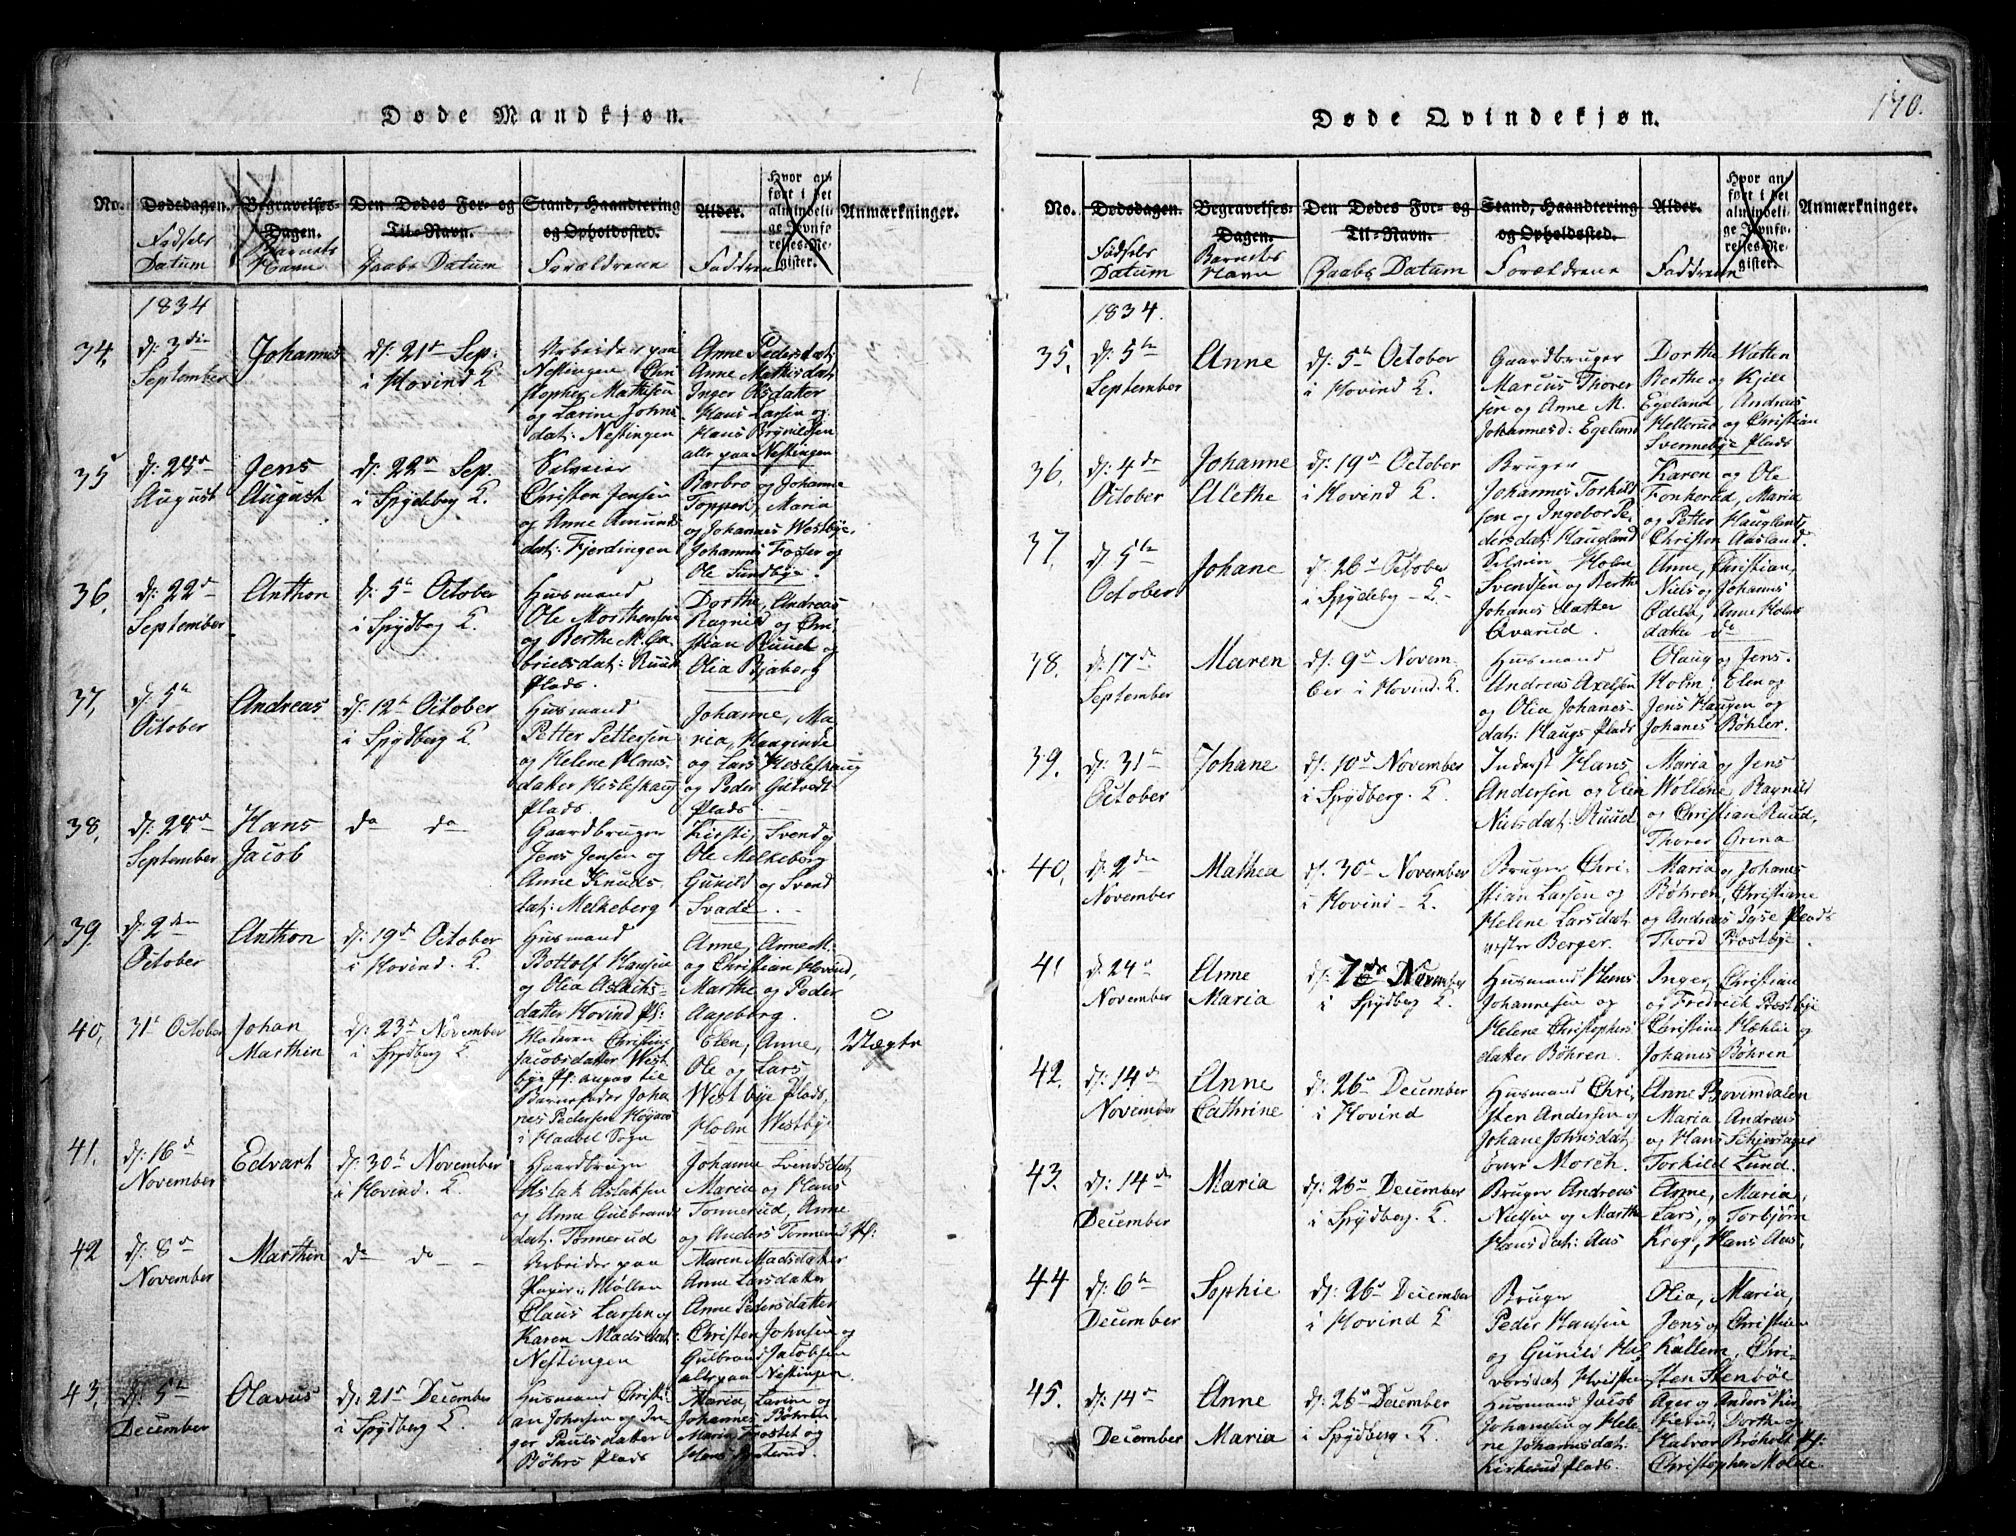 170.
Døde Mandkjøn.
No. Dødsdagen. Begravelses-Dagen. Den Dødes For- og Til-Navn. Stand, Haandtering og Opholdssted. Alder. Hvor anført i det almindelige Jevnførelses-Register. Anmærkninger.
Fødsels Datum
Barnets Navn
Daabs Datum
Forældrene
Faddrene
1834
34. d: 3die September
Johannes
d: 21de Sep: i Hovind K
Arbeider paa
Nestingen Chri-
stopher Mathisen
og Larine Johns
dat: Nestingen
Anne Pedersdat:
Anne Mathisdat:
Inger Olsdatter
Hans Larsen og
Hans Brynildsen
alle paa Nestingen
35 d: 28de August
Jens August
d: 22de Sep. i Spydeberg K.
Selveier
Christen Jensen
og Anne Amunds
dat: Fjerdingen
Barbro og Johanne
Topper, Maria
og Johannes Westbye,
Johannes Foster og
Ole Sundbye.
36. d: 22de September
Anthon
d: 5te October i Spydberg K.
Husmand
Ole Morthensen
og Berthe M. Ga-
brielsdat: Ruud
Plads.
Dorthe, Andreas
Ragnild og Chri-
stian Ruud og
Olia Bjaberg
37, d: 5te October
Andreas
d: 12te October i Spydberg K.
Husmand
Petter Pettersen
og Helene Hans-
datter Hesleskaug
Plads.
Johanne, Ma-
ria,
og Lars Hesleskaug
og Peder
Plads
38, d: 28de September
Hans Jacob
do do
Gaardbruger
Jens Jensen og
Anne Knuds-
dat: Melkeberg
Kirsti, Svend og
Ole Melkeberg
Gunild og Svend
Svade.
39. d: 2den October
Anthon
d: 19de October i Hovind K.
Husmand
Bottolf Hansen
og Olia Aslachs-
datter Hovind Pl:
Anne, Anne M.
og Christian Hovind,
Marthe og Peder
Aageberg.
40, 31te October
Johan Marthin
d: 23de November i Spydberg K
Moderen Christine
Jacobsdatter West-
bye Pl: angav til
Barnefader Joha-
nes Pedersen
i Haabel Sogn
Elen, Anne,
Ole og Lars
Westbye Plads,
Holm Westbye
Uægte
41. d: 16de November
Edvart
d: 30te November i Hovind. K
Gaardbruger
Aslak Aslaksen
og Anne Gulbrands
dat: Tonnerud
Johanne Svendsdat
Maria og Hans
Tonnerud, Anne
og Anders Tonnerud Pl:
42 d: 8de November
Marthin
do do
Arbeider paa
Papir Møllen
Claus Larsen og
Karen Madsdat:
Nestingen
Maren Madsdatter
Anne Larsdatter
Anne Pedersdatter
Christen Johnsen og
Gulbrand Jacobsen
alle paa Nestingen.
43, d: 5te December
Olavus
d: 21de December i Spydberg K
Husmand Christi-
an Johnsen og In-
ger Paulsdatter
Bøhrs Plads
Maria, Larine og
Johannes Bøhren
Maria
Døde Qvindekjøn.
No. Dødsdagen. Begravelses-Dagen. Den Dødes For- og Til-Navn. Stand, Haandtering og Opholdssted. Alder. Hvor anført i det almindelige Jevnførelses-Register. Anmærkninger.
Fødsels Datum
Barnets Navn
Daabs Datum
Forældrene
Faddrene
1834.
35. d: 5te September
Anne
d: 5te October i Hovind K.
Gaardbruger
Marcus Thorer
sen og Anne M.
Johannesd: Egeland
Dorthe Watten
Berthe og Kjell
Egeland, Andreas
Hellerud og Christian
Svennebye Plads
36. d: 4de October
Johanne Alethe
d: 19de October i Hovind K.
Bruger
Johannes Torkild
sen og Ingebor Pe-
dersdat: Haugland
Karen og Ole
Fonkerud, Maria
og Petter Haugland,
Christen Aasland.
37. d: 5te October
Johane
d: 26de October i Spydeby - K.
Selveier Holm
Svendsen og Berthe
Johanes datter
Qvarud.
Anne, Christian,
Niels og Johannes
Anne Holms
datter do
38. d: 17de September
Maren
d: 9de November i Hovind. K.
Husmand
Andreas Axelsen
og Olia Johanes-
dat: Haugs Plads
Olaug og Jens
Holm, Elen og
Jens Haugen og
Johanes Bøhler.
39. d: 31te October
Johane
d: 10de November i Spydberg. K.
Inderst Hans
Andersen og Elen
Nielsdat: Ruud
Maria og Jens
Wøllene Ragnild
og Christian Ruud,
Thorer Grena
40, d: 2den November
Mathea
d: 30te November i Hovind - K.
Bruger Chri-
stian Larsen og
Helene Larsdat:
vestre Berger.
Maria og Johanes
Bøhren, Christiane
og Andreas Plads
Thord Prostbye.
41 d: 24de November
Anne Maria
d: November i Spydberg K.
Husmand Hans
Johannesen og
Helene Christophers
datter Bøhren.
Inger, Christian
og Fredrick Prostbye
Christine Hæhlie og
Johanes Bøhren
42. d: 14de November
Anne Cathrine
d: 26de December i Hovind
Husmand Chri-
sten Andersen og
Johane Johnsdat:
øvre Morch.
Anne Bovimdalen
Maria, Andreas
og Hans
Torkild Lund.
43. d: 14de December
Maria
d: 26de December i Spydberg. K.
Bruger Andreas
Nielsen og Marthe
Hansdat: Aas
Anne, Maria,
Lars, og Torbjørn
Krog, Hans Aas,
44 d: 6te December
Sophie
d: 26de December i Hovind K
Bruger
Peder Hansen
og Gunild Hal
vorsdat
Olia, Maria,
Jens og Christian
Kallem, Chri-
sten Stenbøe
45. d: 14de December
Anne Maria
d: 26de December i Spydberg. K.
Husmand Jacob
Johannesen og Hele-
ne Johannesdat:
Kirkerud Plads.
Dorthe og
Halvor Brøholt Pl:
Christopher Molde.